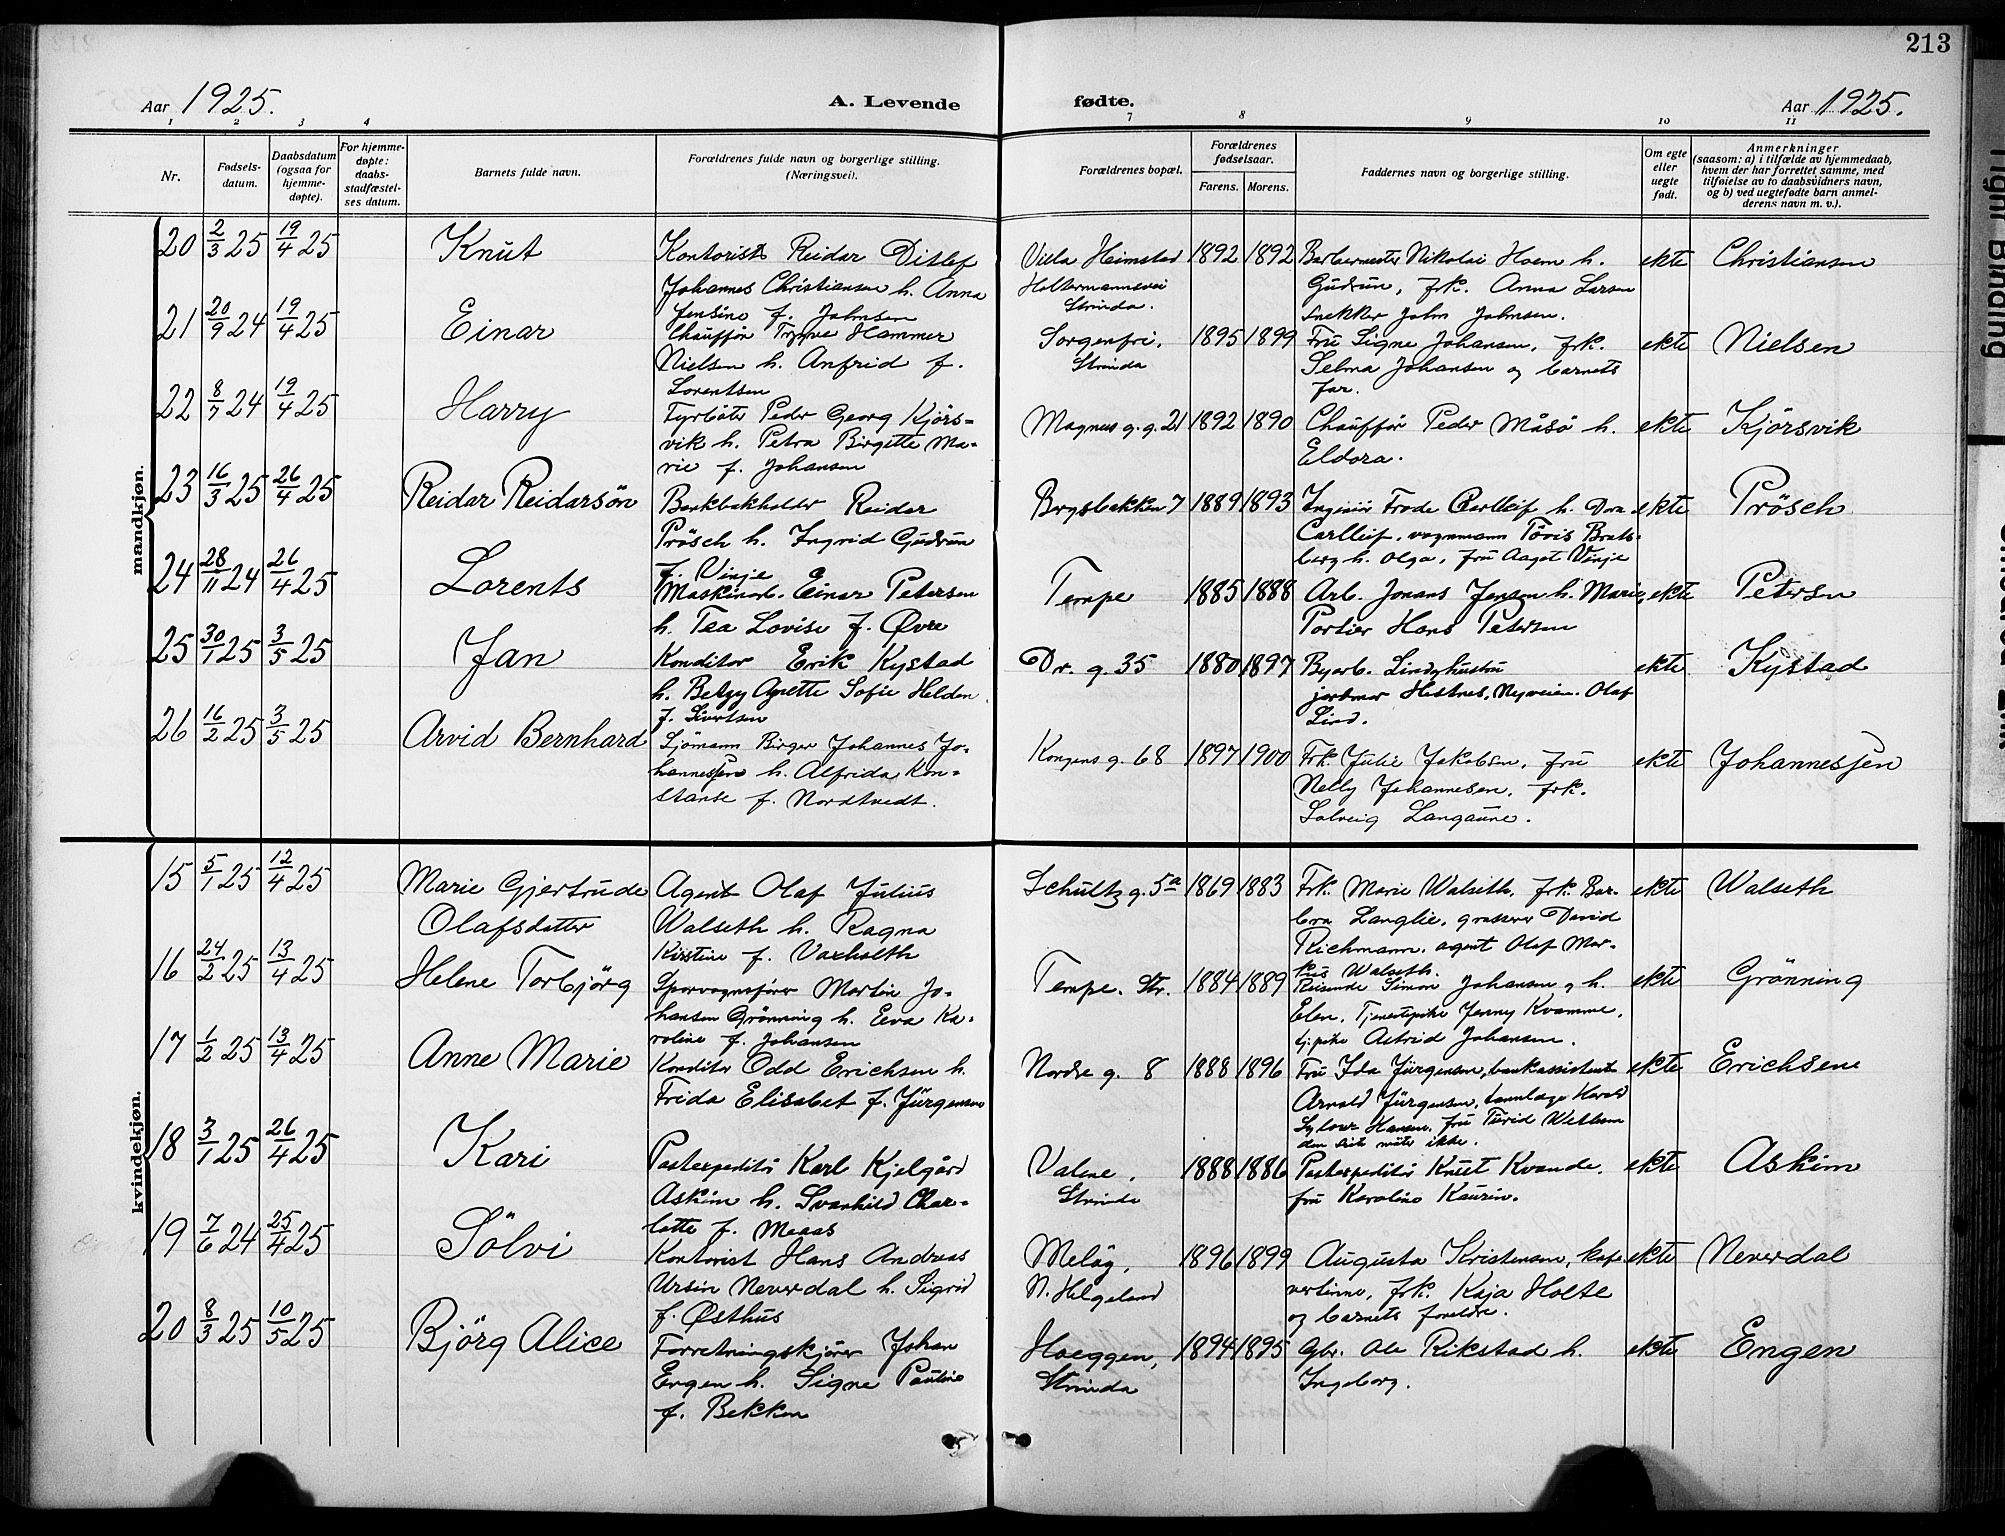 213
Aar 1925.
A. Levende fødte.
Aar 1925.
1 2 3 4 7 8 9 10 11
Nr.
Fødsels-
datum.
Daabsdatum
(ogsaa for
hjemme-
døpte).
For hjemme-
døpte:
daabs-
stadfæstel-
ses datum.
Barnets fulde navn.
Forældrenes fulde navn og borgerlige stilling.
(Næringsvei).
Forældrenes bopæl.
Forældrenes
fødselsaar.
Farens. Morens.
Faddernes navn og borgerlige stilling.
Om egte
eller
uegte
født.
Anmerkninger
(saasom: a) i tilfælde av hjemmedaab,
hvem der har forrettet samme, med
tilføielse av to daabsvidners navn,
og b) ved uegtefødte barn anmel-
derens navn m. v.).
mandkjøn.
20 2/3 25 19/4 25 Knut
Kontorist Reidar Ditlef
Johannes Christiansen h. Anna
Jensine f. Johnsen
Villa Heimstad
Holtermannsvei
Strinda.
1892 1892
Barbermester Nikolai Hoem h.
Gudrun, frk. Anna Larsen
snekker John Johnsen.
ekte Christiansen
21 20/9 24 19/4 25 Einar
Chauffør Trygve Hammer
Nielsen h. Anfrid f.
Lorentsen
Sorgenfri,
Strinda
1895 1899
Fru Signe Johansen, frk.
Selma Johansen og barnets
far.
ekte Nielsen
22 8/7 24 19/4 25 Harry
Fyrbøter Peder Georg Kjørs-
vik h. Petra Birgitte Ma-
rie f. Johansen
Magnus g. g. 21
1892 1890
Chauffør Peder Måsø h.
Eldora.
ekte Kjørsvik
23 16/3 25 26/4 25 Reidar Reidarsøn
Bankbokholder Reidar
Prøsch h. Ingrid Gudrun
f. Vinje
Brygsbakken 7
1889 1893
Ingeniør Frode Carlleif h. Dora
Carlleif, vognmann Tøvis Brats-
berg h. Olga, fru Aagot Vinje
ekte Prøsch
24 28/11 24 26/4 25 Lorents
Maskinarb. Einar Petersen
h. Tea Lovise f. Øvre
Tempe
1885 1888
Arb. Jonans Jensen h. Marie,
Portier Hans Petersen
ekte Petersen
25 30/1 25 3/5 25 Jan
Konditor Erik Kystad
h. Betzy Agnette Sofie Helden
f. Sivertsen
Dr. g. 35
1880 1897
Byarb. Lindghustru
jordmor Hestnes, Nyveien. Olaf
Lind.
ekte Kystad
26 16/2 25 3/5 25 Arvid Bernhard
Sjømann Birger Johannes Jo-
hannessen h. Alfrida Kon-
stanse f. Nordtvedt.
Kongens g. 68
1897 1900
Frk. Julie Jakobsen, fru
Nelly Johannesen, frk.
Solveig Langaune.
ekte Johannessen
kvindekjøn.
15 5/1 25 12/4 25 Marie Gjertrude
Olafsdatter
Agent Olaf Julius
Walseth h. Ragna
Kirstine f. Vaxholth
Schultz g. 5a
1869 1883
Frk. Marie Walseth, frk. Bar-
bra Langlie, grosserer David
Richmann, agent Olaf Mar-
kus Walseth.
ekte Walseth
16 24/2 25 13/4 25 Helene Torbjørg
Sporvognsfører Martin Jo-
hansen Grønning h. Eeva Ka-
roline f. Johansen
Tempe. Str.
1884 1889
Reisende Simon Johansen og h.
Elen, Tjenestepike Jenny Kvamme,
tj.pike Astrid Johansen.
ekte Grønning
17 1/2 25 13/4 25 Anne Marie
Konditor Odd Erichsen h.
Frida Elisabet f. Jürgensen
Nordre g. 8
1888 1896
Fru Ida Jürgensen, bankassistent
Arnold Jürgensen, tannlæge Harald
Sylow Hansen, fru Turid Wetlesen
den siste møtte ikke.
ekte Erichsen
18 3/1 25 26/4 25 Kari
Postexpeditør Karl Kjelgård
Askim h. Svanhild Char-
lotte f. Maaas
Valene,
Strinda
1888 1886
Postexpeditør Knut Kvande.
fru Karoline Kaurin.
ekte Askim
19 7/6 24 25/4 25 Sølvi
Kontorist Hans Andreas
Ursin Neverdal h. Sigrid
f. Østhus
Meløy,
N. Helgeland
1896 1899
Augusta Kristensen, kafe
vertinne, frk. Kaja Holte
og barnets foreldre.
ekte Neverdal
20 8/3 25 10/5 25 Bjørg Alice
Forretningskjører Johan
Engen h. Signe Pauline
f. Bekken
Hoeggen,
Strinda
1894 1895
Gbr. Ole Rikstad h.
Ingeborg.
ekte Engen